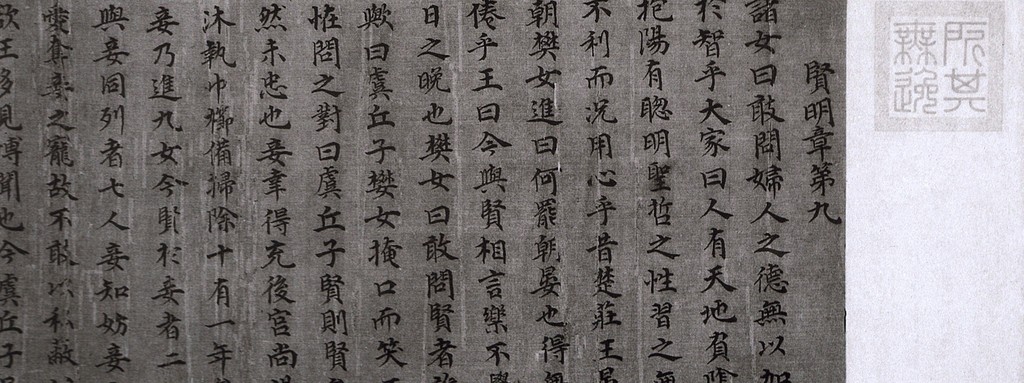 賢明章第九
諸女曰敢問婦人之德無以加
於智乎大家曰人有天地負陰
抱陽有聦明聖哲之性習之無
不利而況用心乎昔楚莊王晏
朝樊女進曰何罷朝晏也得無
倦乎王曰今與賢相言樂不覺
日之晚也樊女曰敢問賢者
歟曰虞丘子樊女掩口而笑
恠問之對曰虞丘子賢則賢
然未忠也妾幸得充後宮尚
沐執巾櫛備掃除十有一年
妾乃進九女今賢於妾者二
與妾同列者七人妾知妨妾
愛奪妾之寵故不敢以私蔽
欲王多見博聞也今虞丘子
所其
無逸